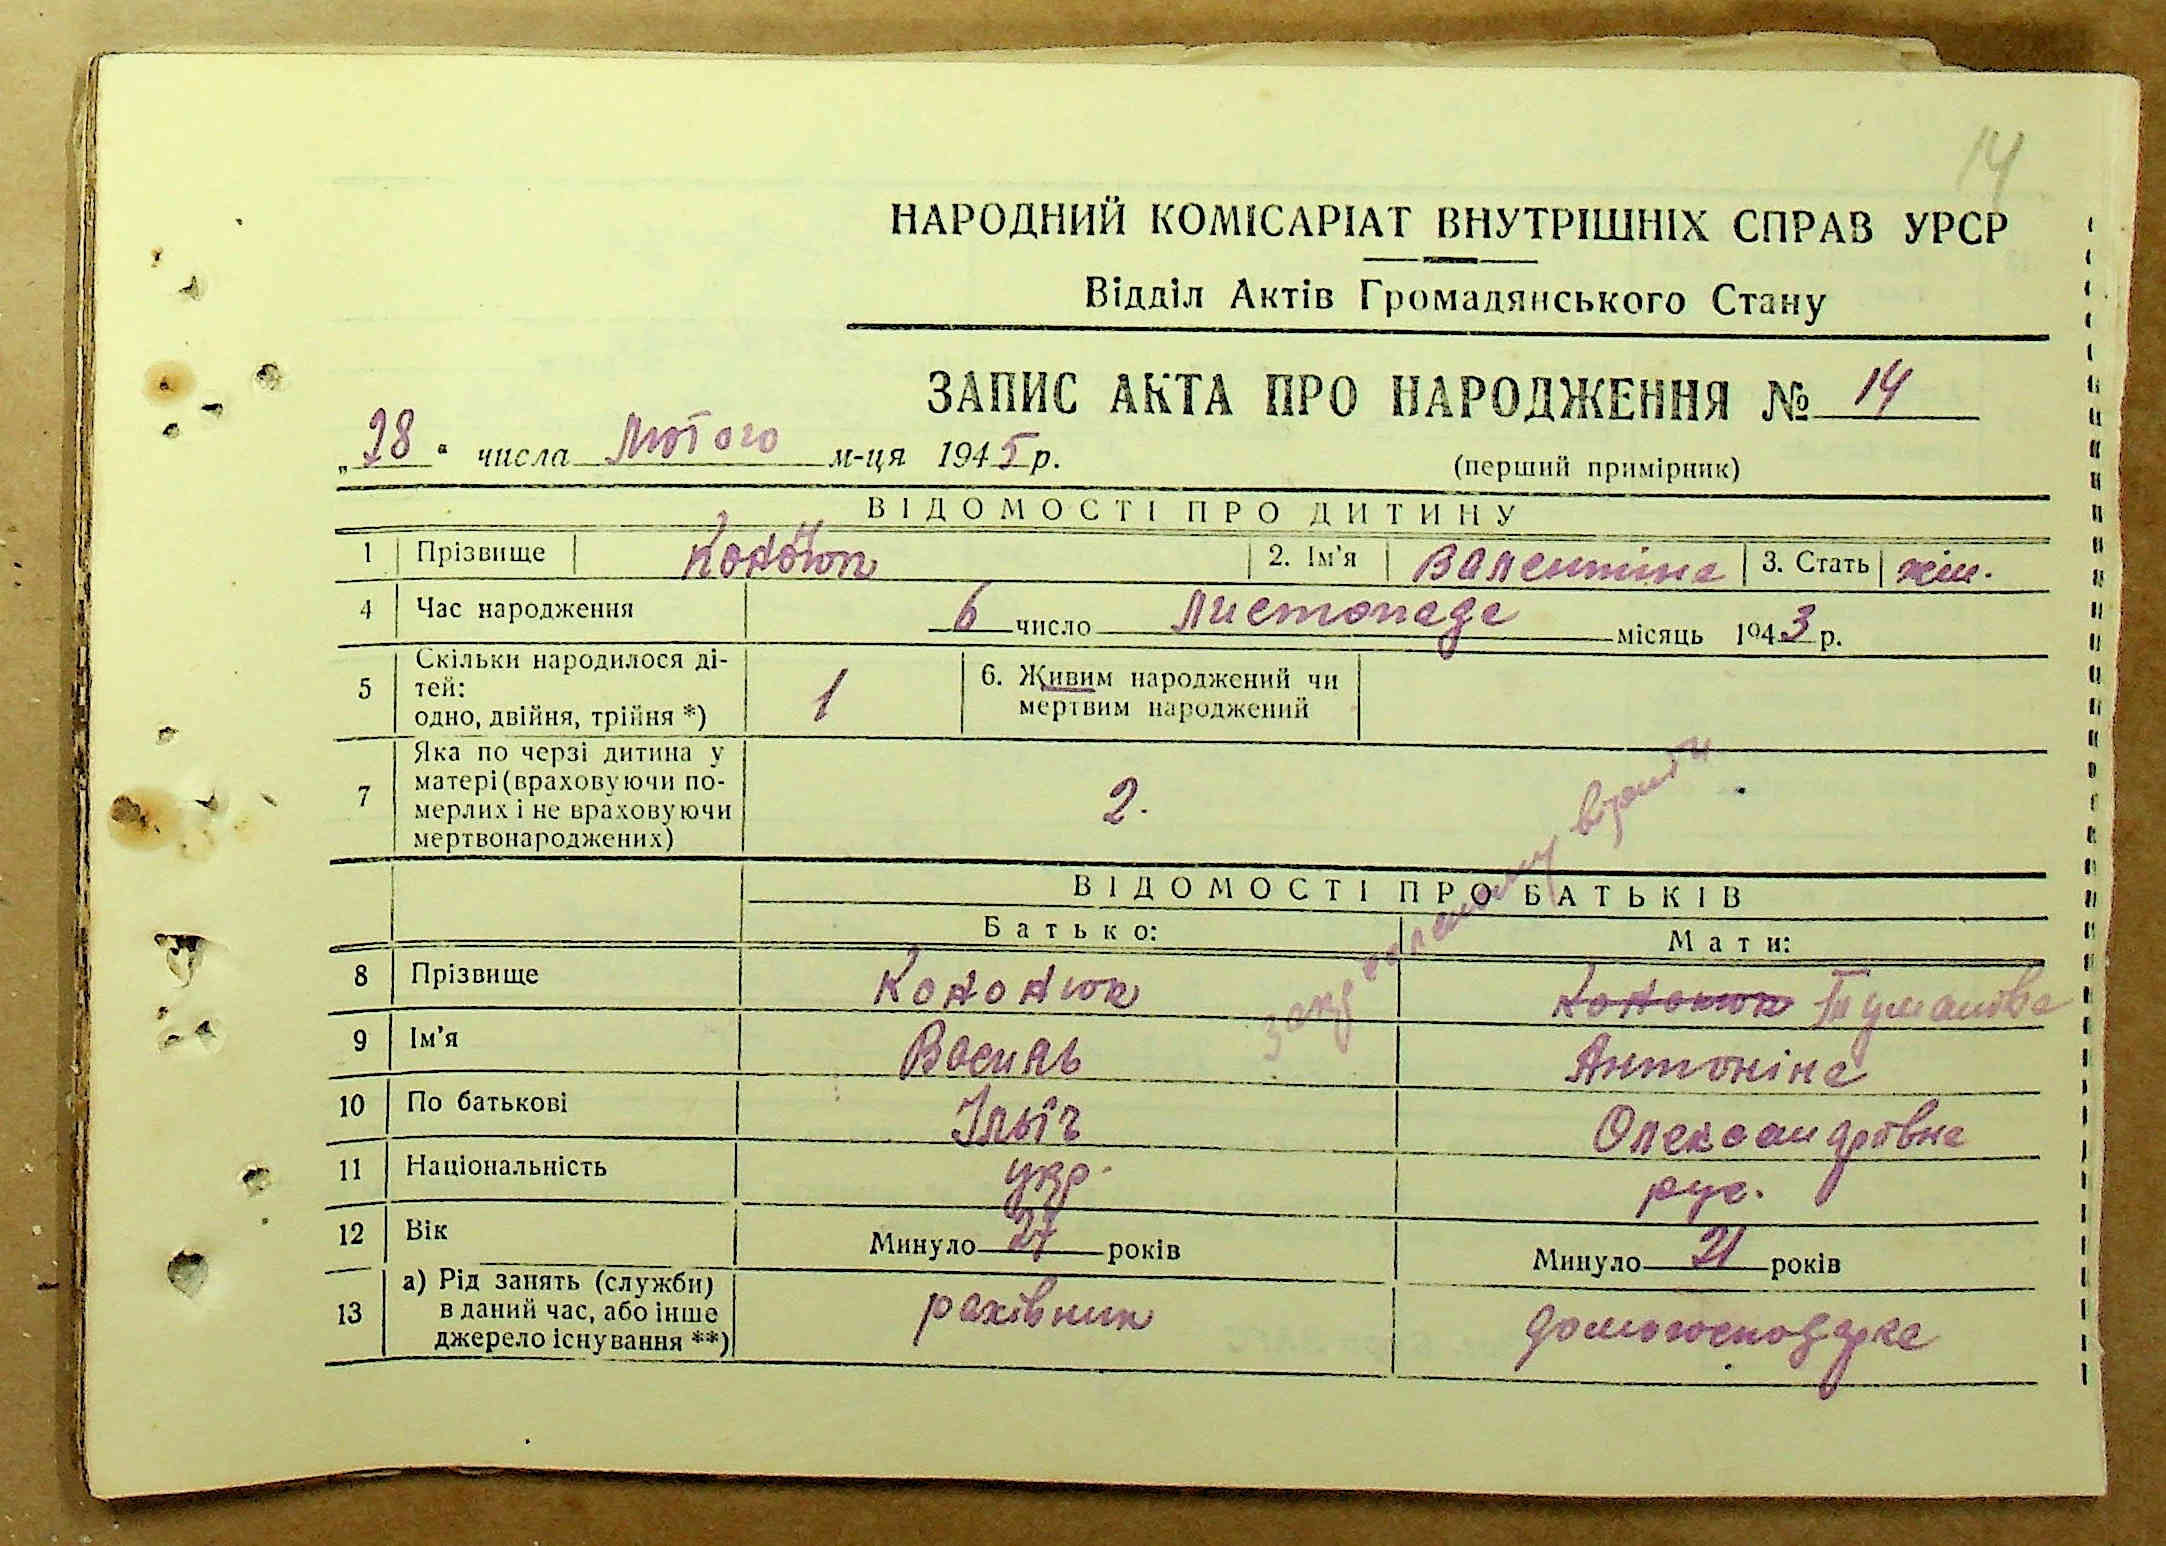 14
НАРОДНИЙ КОМІСАРІАТ ВНУТРІШНІХ СПРАВ УРСР
Відділ Актів Громадянського Стану
ЗАПИС АКТА ПРО НАРОДЖЕННЯ № 14
„28“ числа Лютого м-ця 1945 р. (перший примірник)
ВІДОМОСТІ ПРО ДИТИНУ
1 Прізвище 2. Ім'я Валентина 3. Стать жін.
4 Час народження 6 число листопада місяць 1943 р.
5 Скільки народилося ді-
тей:
одно, двійня, трійня *) 1 6. Живим народжений чи
мертвим народжений
7 Яка по черзі дитина у
матері (враховуючи по-
мерлих і не враховуючи
мертвонароджених) 2.
ВІДОМОСТІ ПРО БАТЬКІВ
Батько: Мати:
8 Прізвище Кононюк Кононюк Туманова
9 Ім'я Василь Антоніна
10 По батькові Ільїч Олександрівна
11 Національність укр. рус.
12 Вік Минуло 27 років Минуло 21 років
13 а) Рід занять (служби)
в даний час, або інше
джерело існування **) рахівник домогосподарка